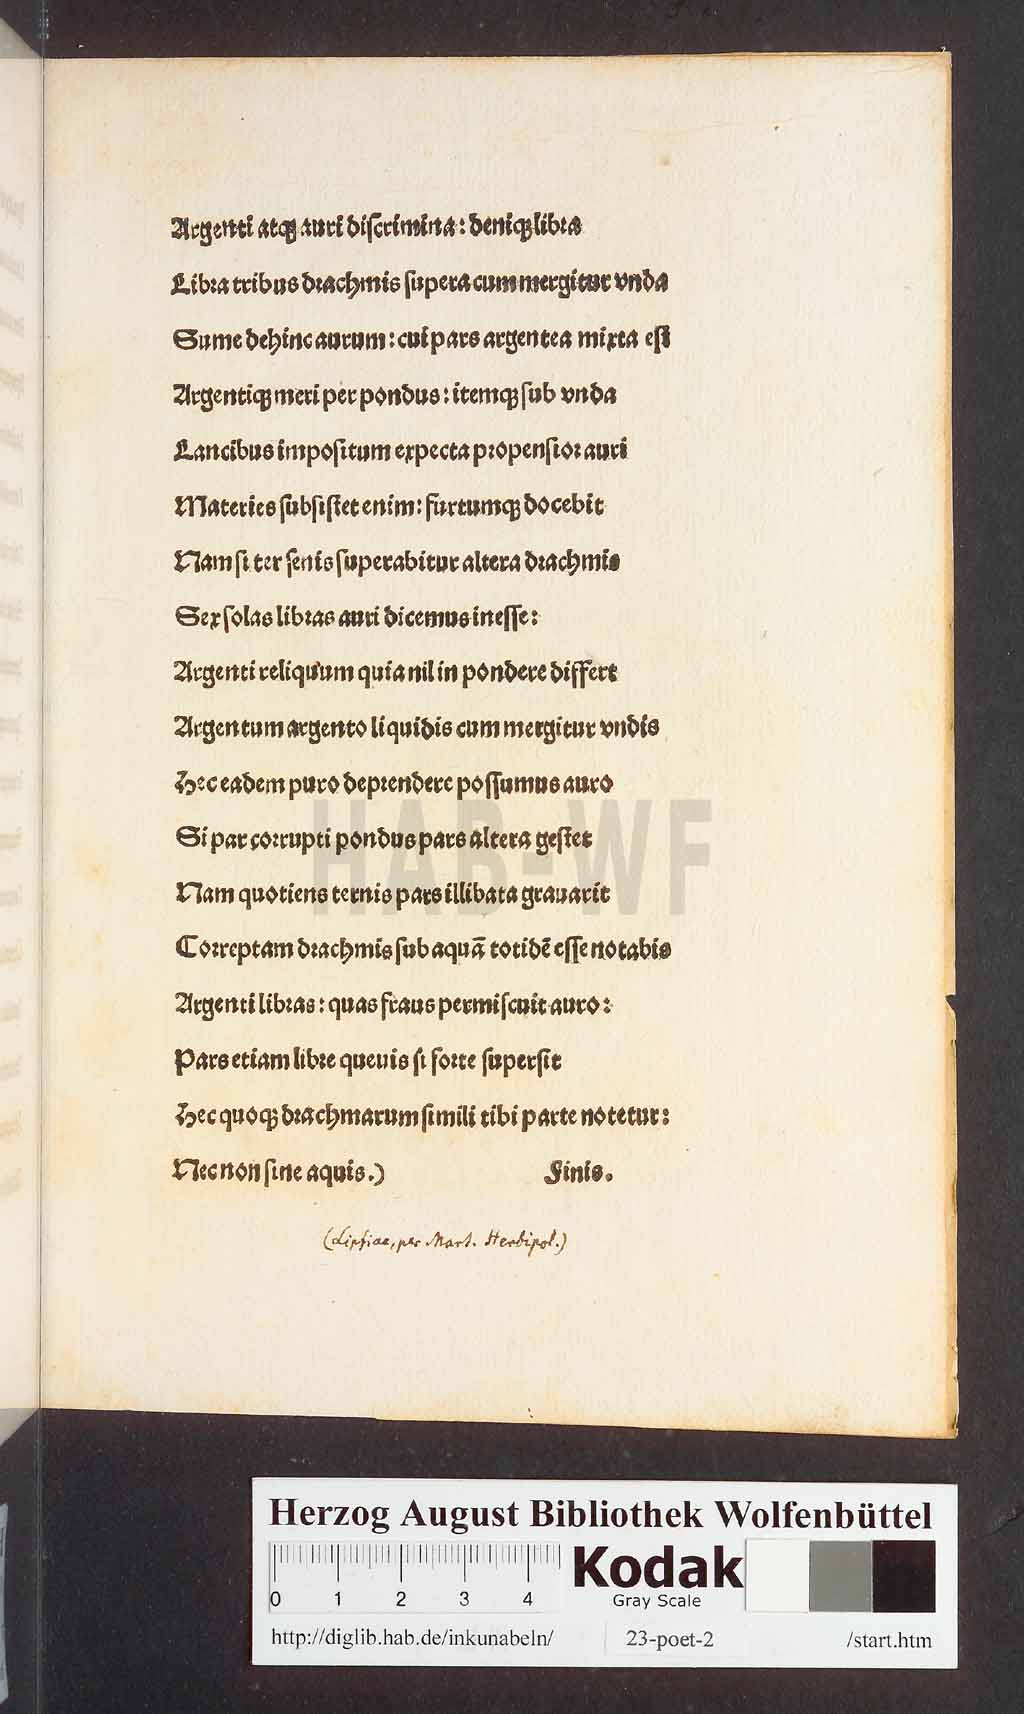 Argenti atqꝫ auri discrimina: deniqꝫ libra
Libra tribus drachmis supera cum mergitur vnda
Sume dehinc aurum: cui pars argentea mixta est
Argentiqꝫ meri per pondus: itemqꝫ sub vnda
Lancibus impositum expecta propensior auri
Materies subsistet enim: furtumqꝫ docebit
Nam si ter senis superabitur altera drachmis
Sex solas libras auri dicemus inesse:
Argenti reliquum quia nil in pondere differt
Argentum argento liquidis cum mergitur vndis
Hec eadem puro deprendere possumus auro
Si par corrupti pondus pars altera gestet
Nam quotiens ternis pars illibata grauarit
Correptam drachmis sub aquā totidē esse notabis
Argenti libras: quas fraus permiscuit auro:
Pars etiam libre queuis si forte supersit
Hec quoqꝫ drachmarum simili tibi parte notetur:
Nec non sine aquis.) Finis.
(Lipsiae, per Mart. Herbipol.)
HAB-WF
Herzog August Bibliothek Wolfenbüttel
0 1 2 3 4
Kodak
Gray Scale
http://diglib.hab.de/inkunabeln/ 23-poet-2 /start.htm